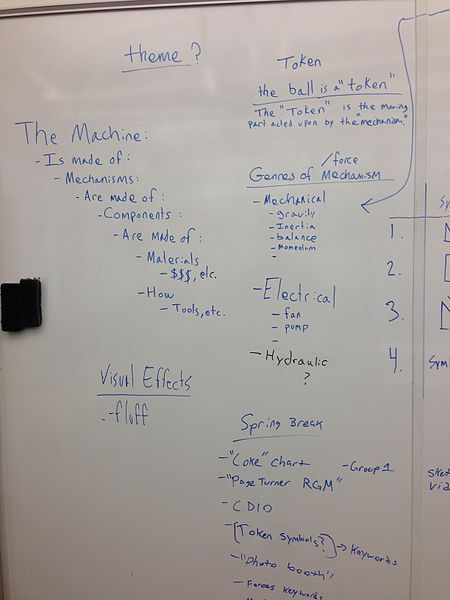 theme?
The Machine:
- Is made of:
- Mechanisms:
- Are made of:
- Components:
- Are made of:
- Materials
- $$$, etc.
- How
- Tools, etc.
Visual Effects
- fluff
Token
the ball is a "token"
The "Token" is the moving
part acted upon by the "mechanism."
/force
Genres of Mechanism
- Mechanical
- gravity
- Inertia
- balance
- Momentum
-
- Electrical
- fan
- pump
-
- Hydraulic
?
Spring Break
- "Coke" chart - Group 1
- "Page Turner RGM"
- CDIO
- [Token symbols?] → Keywords
- "Photo booth"
- Forces Keywords
1.
2.
3.
4.